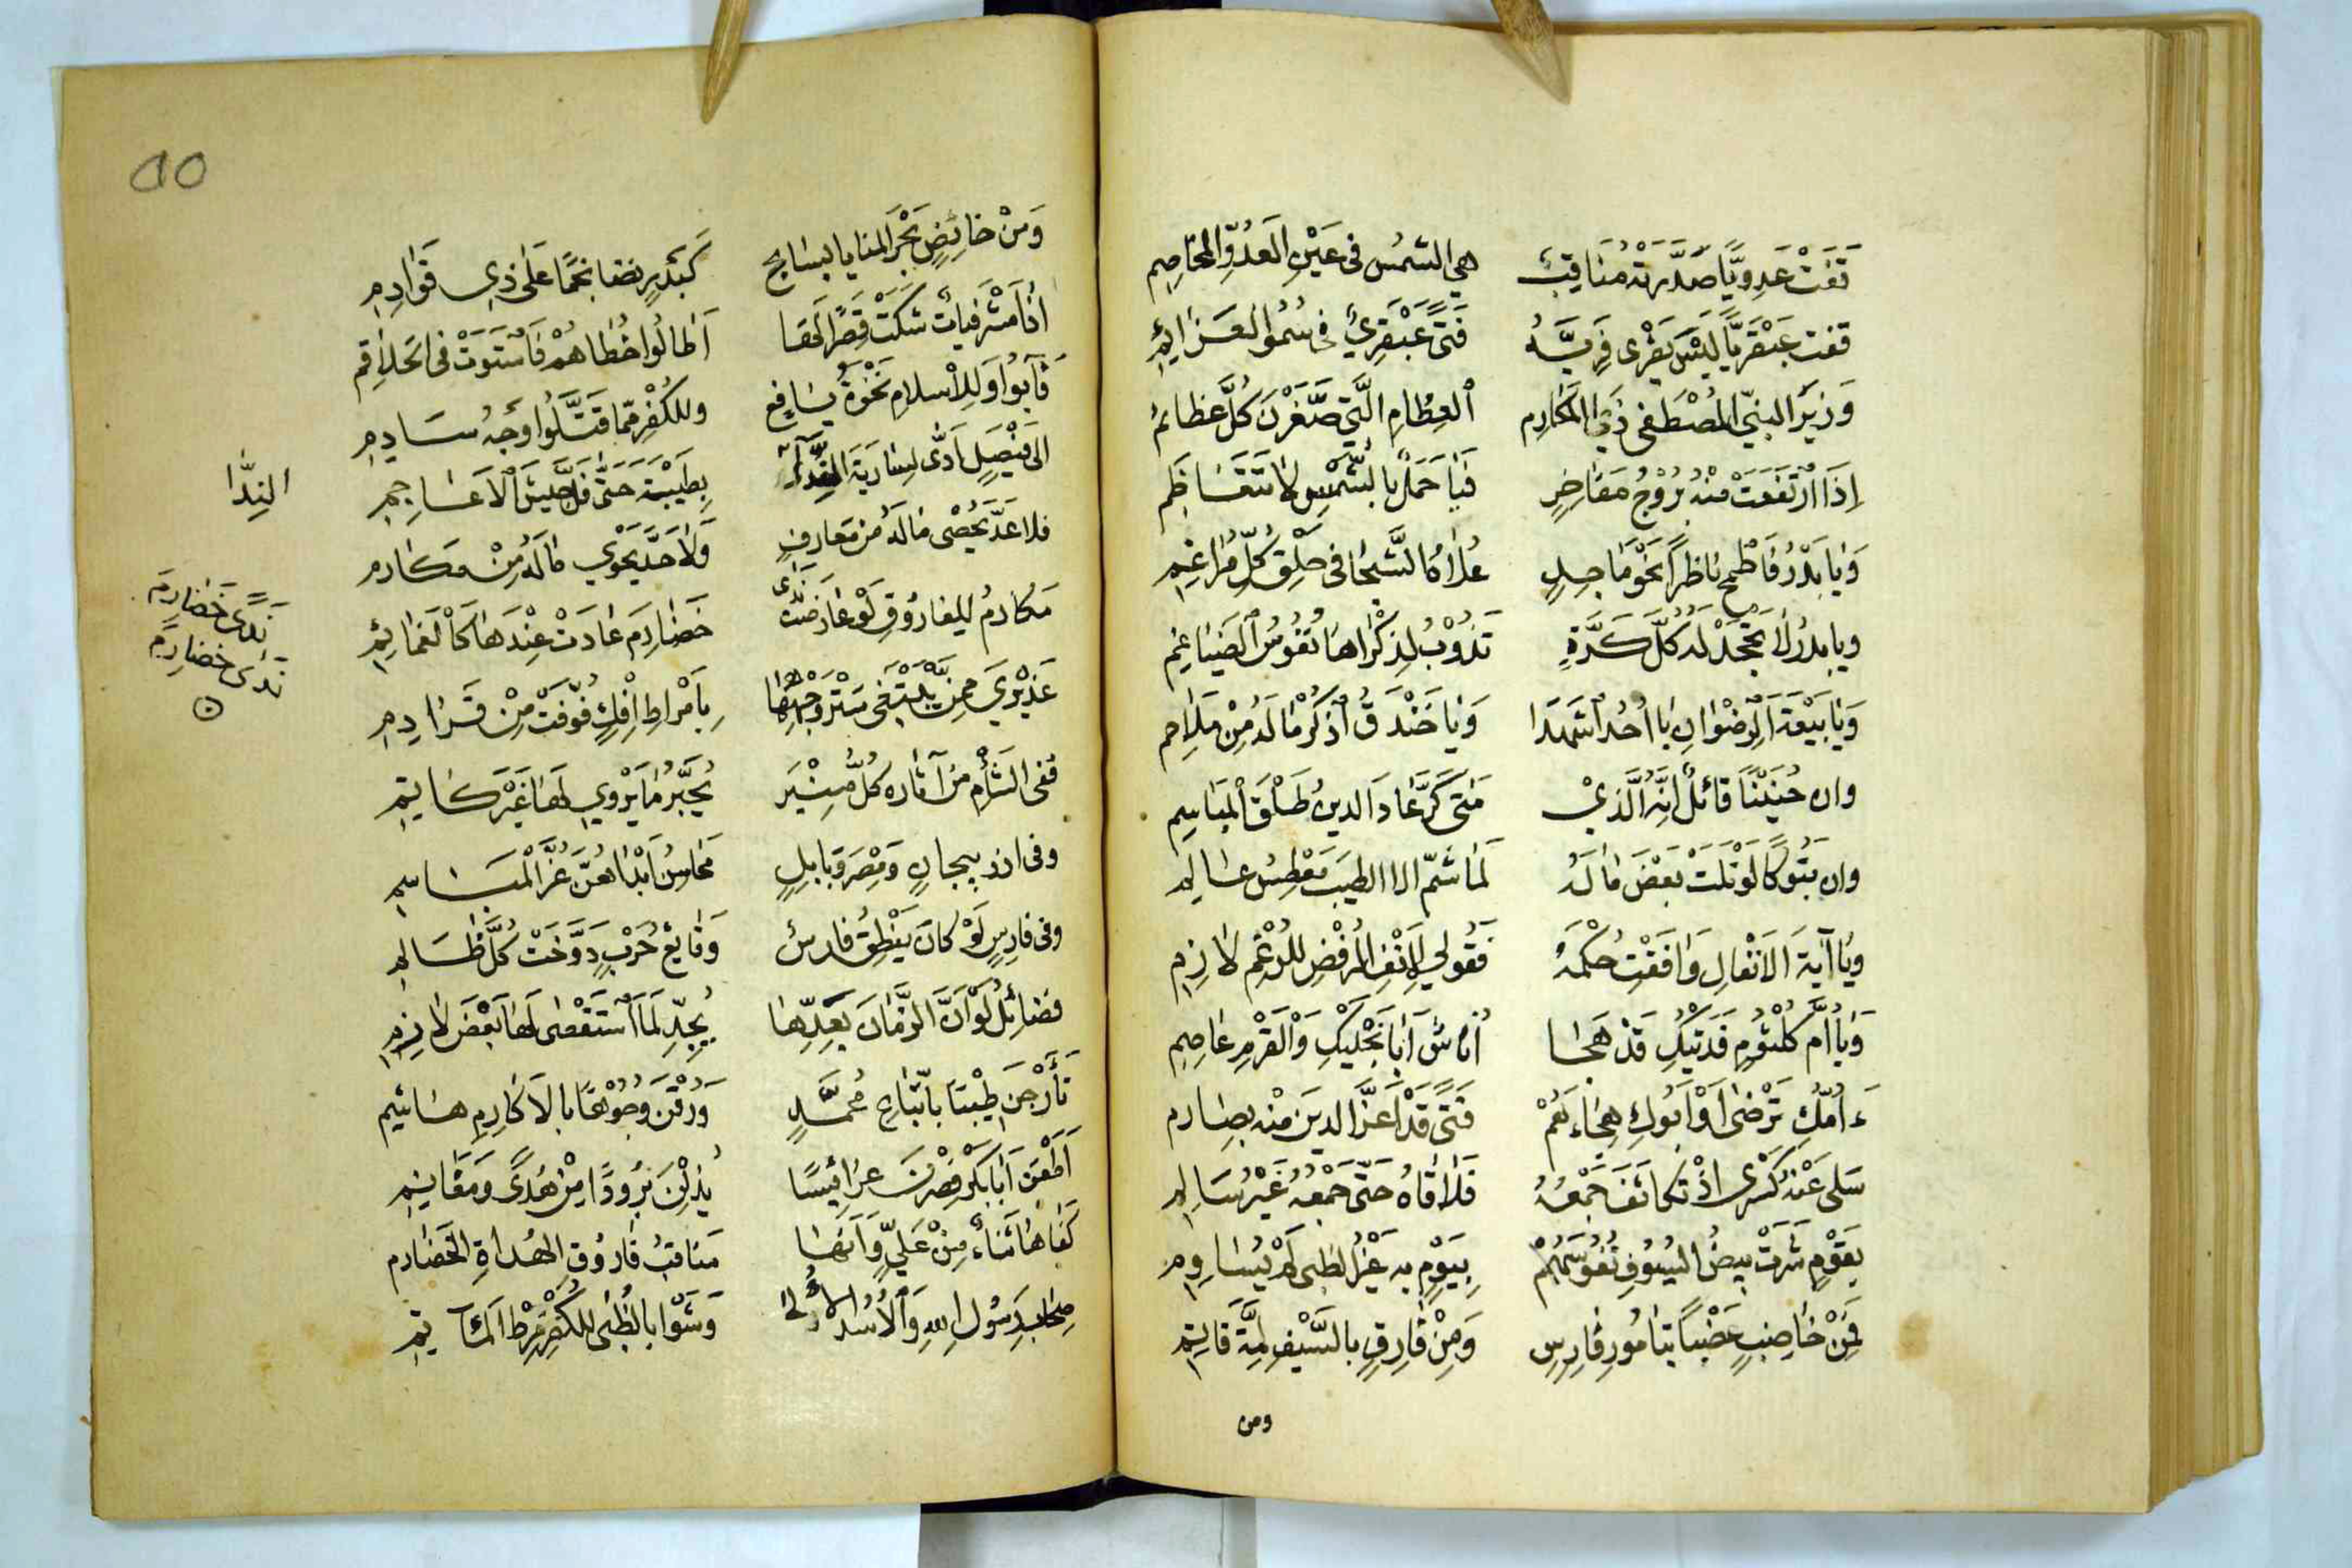 قفت عدويًّا صدّرته مناقبٌ هي الشمس في عين العدوّ المخاصم
قفت عبقريًّا ليس يفرى فريّه فتًى عبقريٌّ في سموّ العزائم
وزير النبيّ المصطفى ذي المكارم العظام التي صغّرن كلّ عظائم
إذا ارتفعت منه بروج مفاخرٍ فيا حملًا بالشمس لا تتعاظم
ويا بدر فاطمح ناظرًا نحو ماجدٍ علاه كالشجا في حلق كلّ مراغم
ويا بدر لا تجحد له كلّ كرّةٍ تذوب لذكراها نفوس الضياغم
ويا بيعة الرضوان يا أحد اشهدا ويا خندق اذكر ما له من ملاحم
وان حنينًا قائل انّه الذي متى كرّ عاد الدين طلق المباسم
وان تبوكًا لو تلت بعض ما له لما شمّ الا الطيب معطس عالم
ويا آية الانفال وافقت حكمه فقولي لانف الرفض للرغم لازم
ويا أمّ كلثوم فديتك قد هجا أناسٌ أبا نجليك والقرم عاصم
ءأمّك ترضى او أبوك هجاءهم فتًى قد اعزّ الدين منه بصارم
سلي عنه كسرى اذ تكاثف جمعه فلاقاه حتّى جمعه غير سالم
بقوم شرت بيض السيوف نفوسهم بيوم به غير الظبى لم يساوم
فمن خاضبٍ عضبًا بتامور فارسٍ ومن فارقٍ بالسيف لمّة قائم
ومن
٩٥
ومن خائضٍ بحر المنايا بسابح كبدرٍ نضا نجمًا على ذي قوادم
اذا مشرفيات شكت قصر الخطا أطالوا خطاهم فاستوت في الحلاقم
فآبوا وللإسلام نخوة يافع وللكفر ممّا قتّلوا وجه سادم
الى فيصل ادّى لسارية النّدا بطيبة حتّى فلّ جيش الاعاجم
النِدّا
فلا عدّ يحصي ما له من معارفٍ ولا حدّ يحوي ما له من مكارم
مكارم للفاروق لو عارضت ندى خضارم عادت عندها كالغمائم
ندًى خضارم
ندى خضارم
عذيري ممن يبتغي ستر وجهها بأمراط افكٍ فوّفت من
ففي الشأم من آثاره كلّ منير يحبّر ما يروي لها غير كاتم
وفي اذربيجان ومصر وبابلٍ محاسن أبداهنّ غرّ المباسم
وفي فارس لو كان ينطق فارس وقايع حرب دوّخت كلّ ظالم
فضائل لو انّ الزمان يعدّها بجدّ لما استقصى لها بعض لازم
تأرّجن طيبًا باتّباع محمّدٍ ورقن وجوهًا بالاكارم هاشم
أطعن أبا بكر فصرن عرائسًا يذلن برودًا من هدًى ومقانم
كفاها ثناء من عليّ وآنها مناقب فاروق الهداة الخضارم
صحاب رسول الله والأسد الأُلى وشوا بالظبى للكفر فرط المآتم